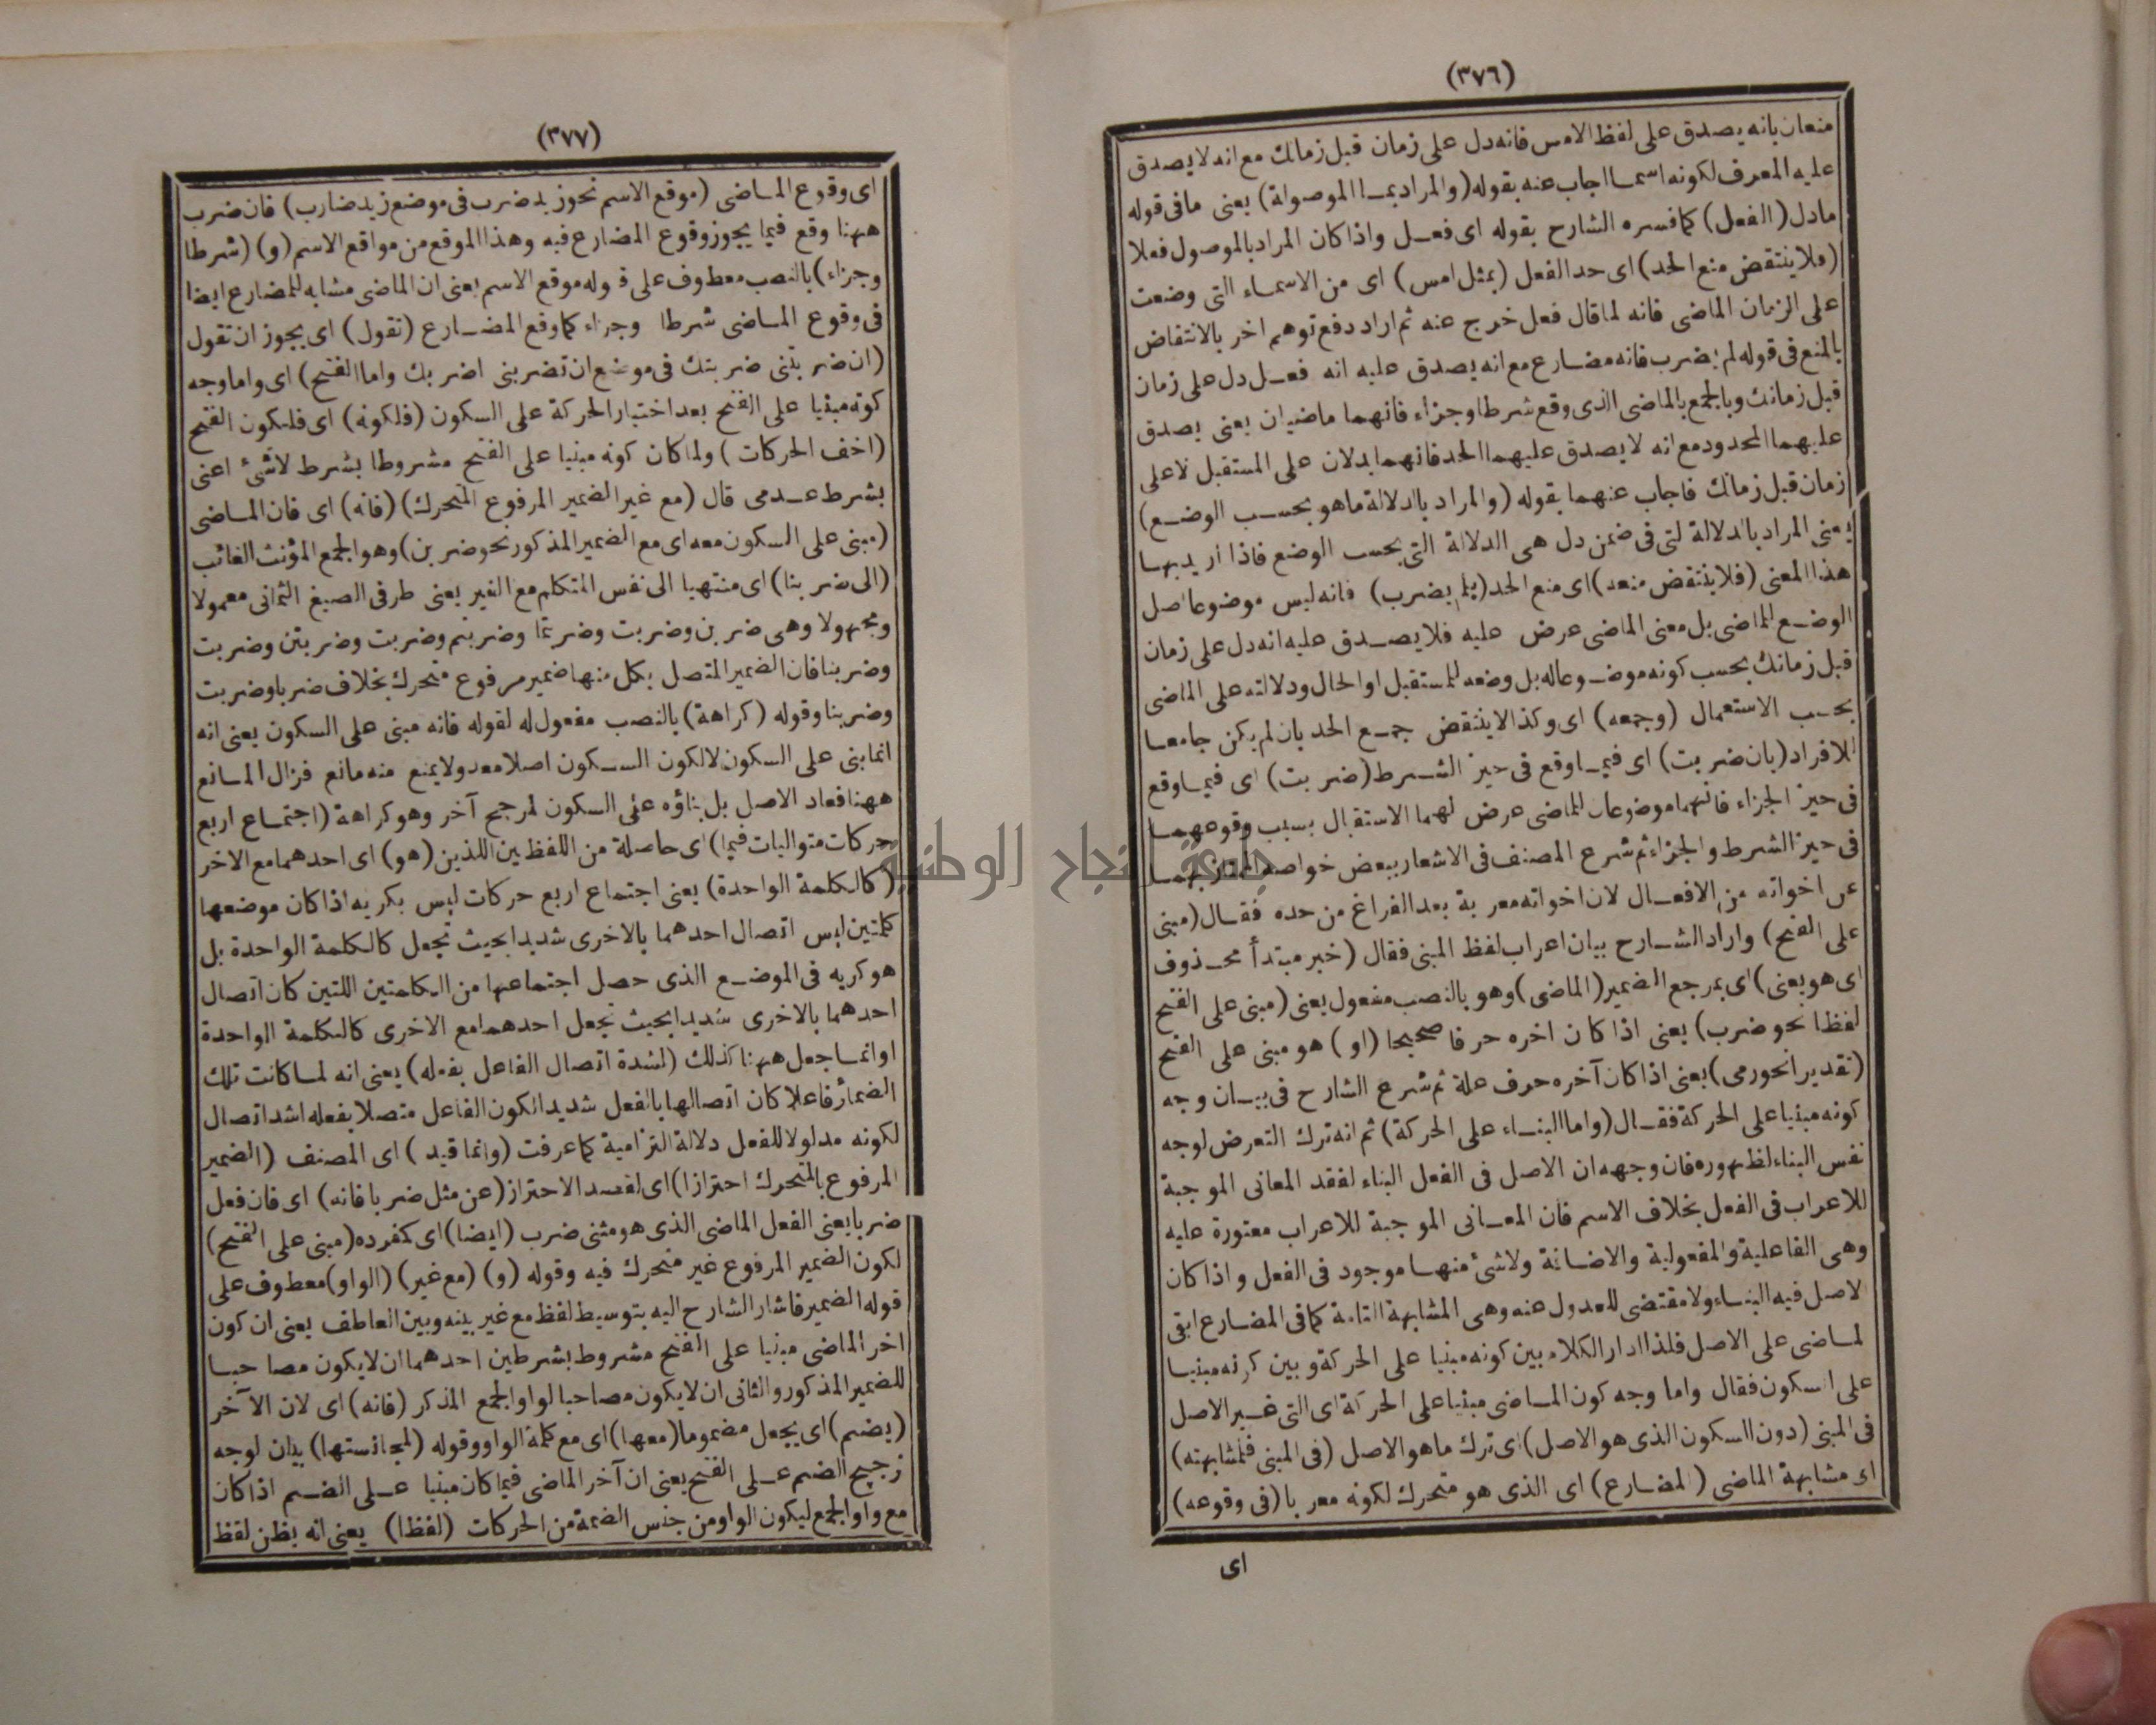 (٣٧٦)
منعان بانه يصدق على لفظ الامس فانه دل على زمان قبل زمانك مع انه لا يصدق
عليه المعرف لكونه اسما اجاب عنه بقوله (والمراد بما الموصولة) يعنى ما فى قوله
مادل (الفعل) كما فسره الشارح بقوله اى فعل واذا كان المراد بالموصول فعلا
(فلا ينتقض منع الحد) اى حد الفعل (بمثل امس) اى من الاسماء التى وضعت
على الزمان الماضى فانه لما قال فعل خرج عنه ثم اراد دفع توهم اخر بالانتقاض
بالمنع فى قوله لم يضرب فانه مضارع مع انه يصدق عليه انه فعل دل على زمان
قبل زمانك وبالجمع بالماضى الذى وقع شرطا وجزاء فانهما ماضيان يعنى يصدق
عليهما المحدود مع انه لا يصدق عليهما الحد فانهما يدلان على المستقبل لا على
زمان قبل زمانك فاجاب عنهما بقوله (والمراد بالدلالة ما هو بحسب الوضع)
يعنى المراد بالدلالة لتى فى ضمن دل هى الدلالة التى بحسب الوضع فاذا اريد بها
هذا المعنى (فلا ينتقض منعه) اى منع الحد (بلم يضرب) فانه ليس موضوعا اصل
الوضع للماضى بل معنى الماضى عرض عليه فلا يصدق عليه انه دل على زمان
قبل زمانك بحسب كونه موضوعا له بل وضعه للمستقبل او الحال ودلالته على الماضى
بحسب الاستعمال (وجمعه) اى وكذا لا ينتقض جمع الحد بان لم يكن جامعا
للافراد (بان ضربت) اى فيما وقع فى حيز الشرط (ضربت) اى فيما وقع
فى حيز الجزاء فانهما موضوعان للماضى عرض لهما الاستقبال بسبب وقوعهما
فى حيز الشرط والجزاء ثم شرع المصنف فى الاشعار ببعض خواصه
عن اخواته من الافعال لان اخواته معربة بعد الفراغ من حده فقال (مبنى
على الفتح) واراد الشارح بيان اعراب لفظ المبنى فقال (خبر مبتدأ محذوف
اى هو يعنى) اى بمرجع الضمير (الماضى) وهو بالنصب مفعول يعنى (مبنى على الفتح
لفظا نحو ضرب) يعنى اذا كان اخره حرفا صحيحا (او) هو مبنى على الفتح
(تقديرا نحو رمى) يعنى اذا كان آخره حرف علة ثم شرع الشارح فى بيان وجه
كونه مبنيا على الحركة فقال (واما البناء على الحركة) ثم انه ترك التعرض لوجه
نفس البناء لظهوره فان وجهه ان الاصل فى الفعل البناء لفقد المعانى الموجبة
للاعراب فى الفعل بخلاف الاسم فان المعانى الموجبة للاعراب معتورة عليه
وهى الفاعلية والمفعولية والاضافة ولا شئ منها موجود فى الفعل واذا كان
لاصل فيه البناء ولا مقتضى للعدول عنه وهى المشابهة التامة كما فى المضارع ابقى
لماضى على الاصل فلذا ادار الكلام بين كونه مبنيا على الحركة وبين كونه مبنيا
على السكون فقال واما وجه كون الماضى مبنيا على الحركة اى التى غير الاصل
فى المبنى (دون السكون الذى هو الاصل) اى ترك ما هو الاصل (فى المبنى فلمشابهته)
اى مشابهة الماضى (المضارع) اى الذى هو متحرك لكونه معربا (فى وقوعه)
اى
(٣٧٧)
اى وقوع الماضى (موقع الاسم نحو زيد ضرب فى موضع زيد ضارب) فان ضرب
ههنا وقع فيما يجوز وقوع المضارع فيه وهذا الموقع من مواقع الاسم (و) (شرطا
وجزاء) بالنصب معطوف على قوله موقع الاسم يعنى ان الماضى مشابه للمضارع ايضا
فى وقوع الماضى شرطا وجزاء كما وقع المضارع (تقول) اى يجوز ان تقول
(ان ضربتنى ضربتك فى موضع ان تضربنى اضربك واما الفتح) اى واما وجه
كونه مبنيا على الفتح بعد اختيار الحركة على السكون (فلكونه) اى فلكون الفتح
(اخف الحركات) ولما كان كونه مبنيا على الفتح مشروطا بشرط لا شئ اعنى
بشرط عدمى قال (مع غير الضمير المرفوع المتحرك) (فانه) اى فان الماضى
(مبنى على السكون معه اى مع الضمير المذكور نحو ضربن) وهو الجمع المؤنث الغائب
(الى ضربنا) اى منتهيا الى نفس المتكلم مع الغير يعنى طرفى الصيغ الثمانى معمولا
ومجهولا وهى ضربن وضربت وضربتما وضربتم وضربت وضربتن وضربت
وضربنا فان الضمير المتصل بكل منها ضمير مرفوع متحرك بخلاف ضربا وضربت
وضربنا وقوله (كراهة) بالنصب مفعول له لقوله فانه مبنى على السكون يعنى انه
انما بنى على السكون لا لكون السكون اصلا معدولا يمنع منه مانع فزال المانع
ههنا فعاد الاصل بل بناؤه على السكون لمرجح آخر وهو كراهة (اجتماع اربع
حركات متواليات فيما) اى حاصلة من اللفظين اللذين (هو) اى احدهما مع الاخر
(كالكلمة الواحدة) يعنى اجتماع اربع حركات ليس بكريه اذا كان موضعها
كلمتين ليس اتصال احدهما بالاخرى شديدا بحيث تجعل كالكلمة الواحدة بل
هو كريه فى الموضع الذى حصل اجتماعها من الكلمتين اللتين كان اتصال
احدهما بالاخرى شديدا بحيث تجعل احدهما مع الاخرى كالكلمة الواحدة
او انما جعل ههنا كذلك (لشدة اتصال الفاعل بفعله) يعنى انه لما كانت تلك
الضمائر فاعلا كان اتصالها بالفعل شديدا لكون الفاعل متصلا بفعله اشد اتصال
لكونه مدلولا للفعل دلالة التزامية كما عرفت (وانما قيد) اى المصنف (الضمير
المرفوع بالمتحرك احترازا) اى لقصد الاحتراز (عن مثل ضربا فانه) اى فان فعل
ضربا يعنى الفعل الماضى الذى هو مثنى ضرب (ايضا) اى كمفرده (مبنى على الفتح)
لكون الضمير المرفوع غير متحرك فيه وقوله (و) (مع غير) (الواو) معطوف على
قوله الضمير فاشار الشارح اليه بتوسيط لفظ مع غير بينه وبين العاطف يعنى ان كون
اخر الماضى مبنيا على الفتح مشروط بشرطين احدهما ان لا يكون مصاحبا
للضمير المذكور والثانى ان لا يكون مصاحبا لواو الجمع المذكر (فانه) اى لان الآخر
(يضم) اى يجعل مضموما (معها) اى مع كلمة الواو وقوله (لمجانستها) بيان لوجه
ترجيح الضم على الفتح يعنى ان آخر الماضى فيما كان مبنيا على الضم اذا كان
مع واو الجمع ليكون الواو من جنس الضمة من الحركات (لفظا) يعنى انه يظن لفظ
جامعة النجاح الوطنية